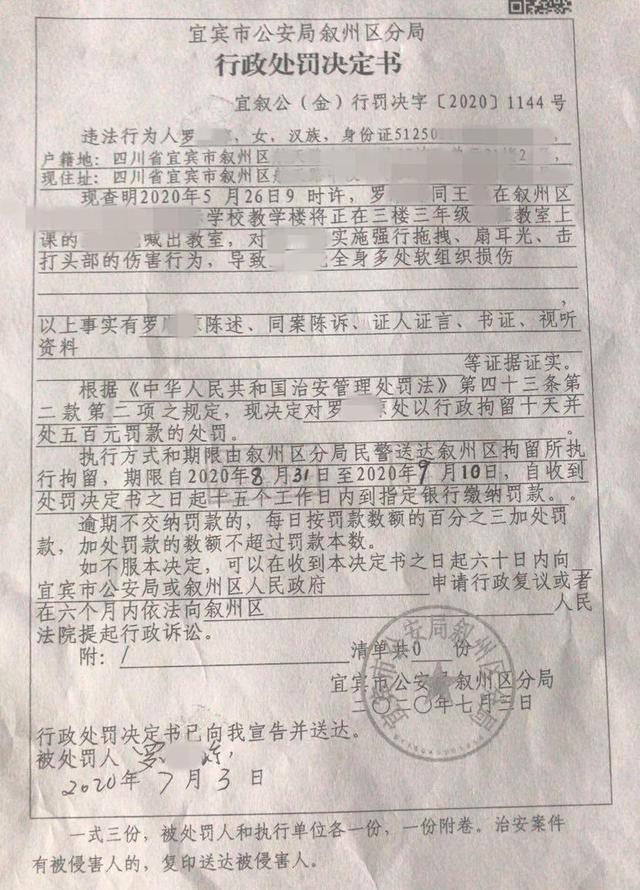 宜宾市公安局叙州区分局
行政处罚决定书
宜叙公（金）行罚决字〔2020〕1144号
违法行为人罗 ，女，汉族，身份证51250
户籍地：四川省宜宾市叙州区
现住址：四川省宜宾市叙州区
现查明2020年5月26日9时许，罗 同王 在叙州区
学校教学楼将正在三楼三年级 教室上
课的 喊出教室，对 实施强行拖拽、扇耳光、击
打头部的伤害行为，导致 全身多处软组织损伤
，
以上事实有罗 陈述、同案陈诉、证人证言、书证、视听
资料
等证据证实。
根据《中华人民共和国治安管理处罚法》第四十三条第
二款第二项之规定，现决定对罗 处以行政拘留十天并
处五百元罚款的处罚。
执行方式和期限由叙州区分局民警送达叙州区拘留所执
行拘留，期限自2020年8月31日至2020年9月10日，自收到
处罚决定书之日起十五个工作日内到指定银行缴纳罚款。。
逾期不交纳罚款的，每日按罚款数额的百分之三加处罚
款，加处罚款的数额不超过罚款本数。
如不服本决定，可以在收到本决定书之日起六十日内向
宜宾市公安局或叙州区人民政府 申请行政复议或者
在六个月内依法向叙州区 人民
法院提起行政诉讼。
附：/ 清单共0 份
宜宾市公安局叙州区分局
二〇二〇年七月三日
行政处罚决定书已向我宣告并送达。
被处罚人 罗
2020年7月3日
一式三份，被处罚人和执行单位各一份，一份附卷。治安案件
有被侵害人的，复印送达被侵害人。